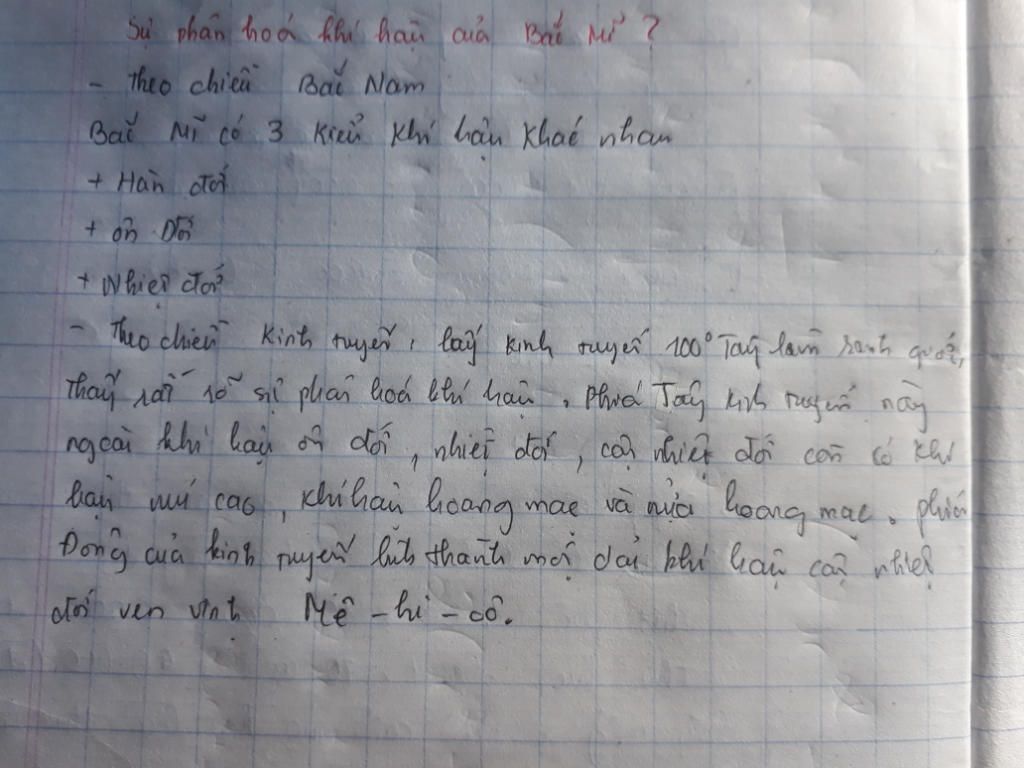 Sự phân hoá khí hậu của Bắc Mĩ ?
- Theo chiều Bắc Nam
Bắc Mĩ có 3 kiểu khí hậu khác nhau
+ Hàn đới
+ ôn Đới
+ Nhiệt đới
- Theo chiều kinh tuyến, lấy kinh tuyến 100° Tây làm ranh giới,
thấy rất rõ sự phân hoá khí hậu. Phía Tây kinh tuyến này
ngoài khí hậu ôn đới, nhiệt đới, cận nhiệt đới còn có khí
hậu núi cao, khí hậu hoang mạc và nửa hoang mạc. phía
Đông của kinh tuyến hình thành một dải khí hậu cận nhiệt
đới ven vịnh Mê - hi - cô.